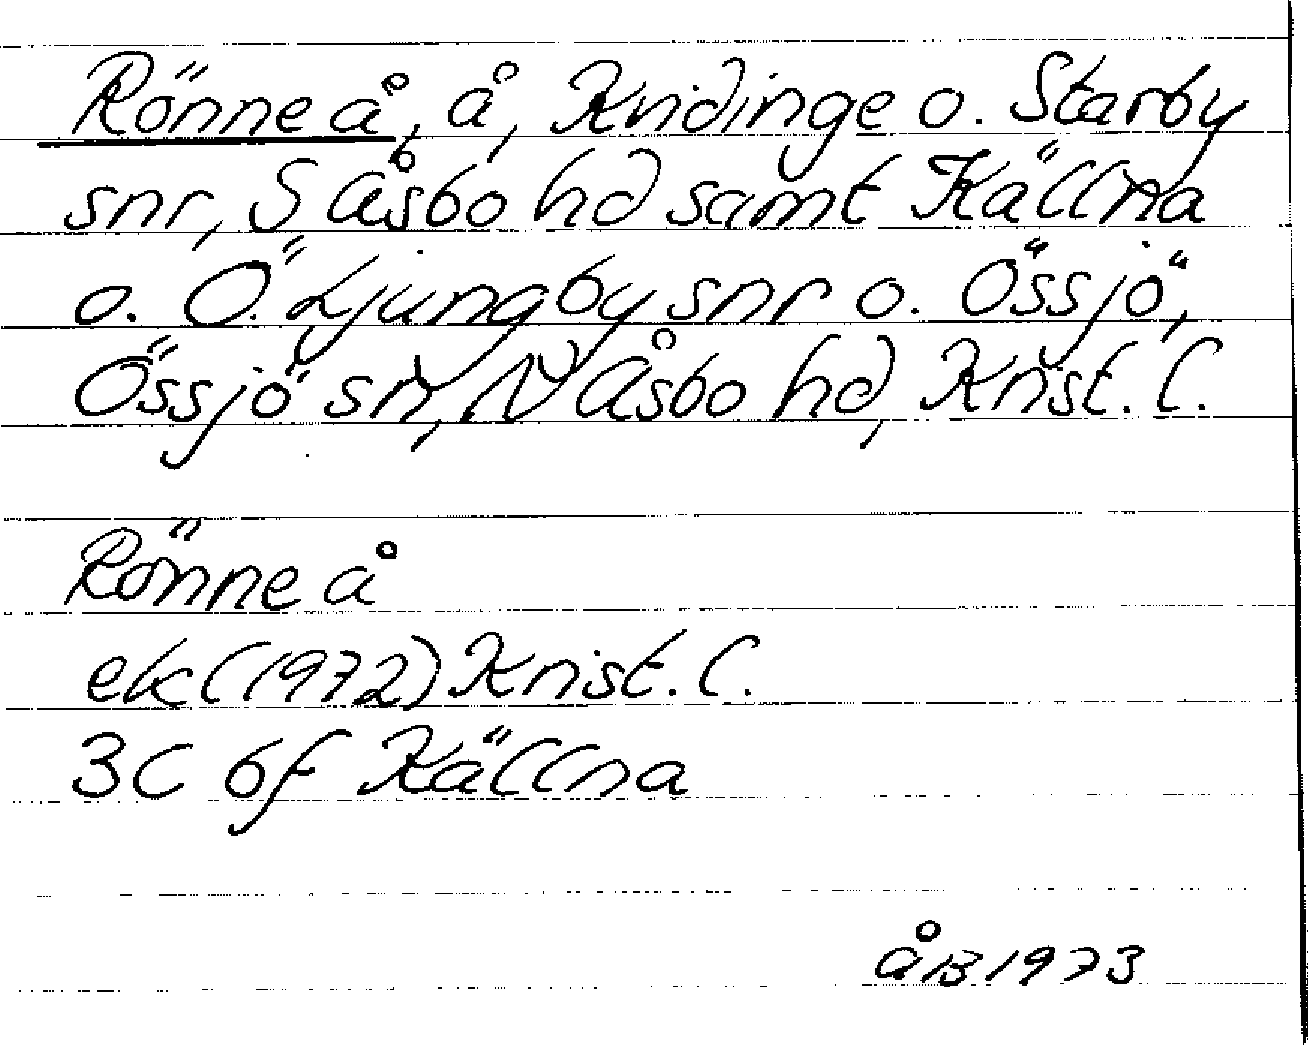 Rönne å, å, Kvidinge o. Starby
snr, S Åsbo hd samt Källna
o. Ö. Ljungby snr o. Össjö,
Össjö sn, N Åsbo hd, Krist. l.
Rönne å
ek (1972) Krist. l.
3C 6f Källna
åB 1973